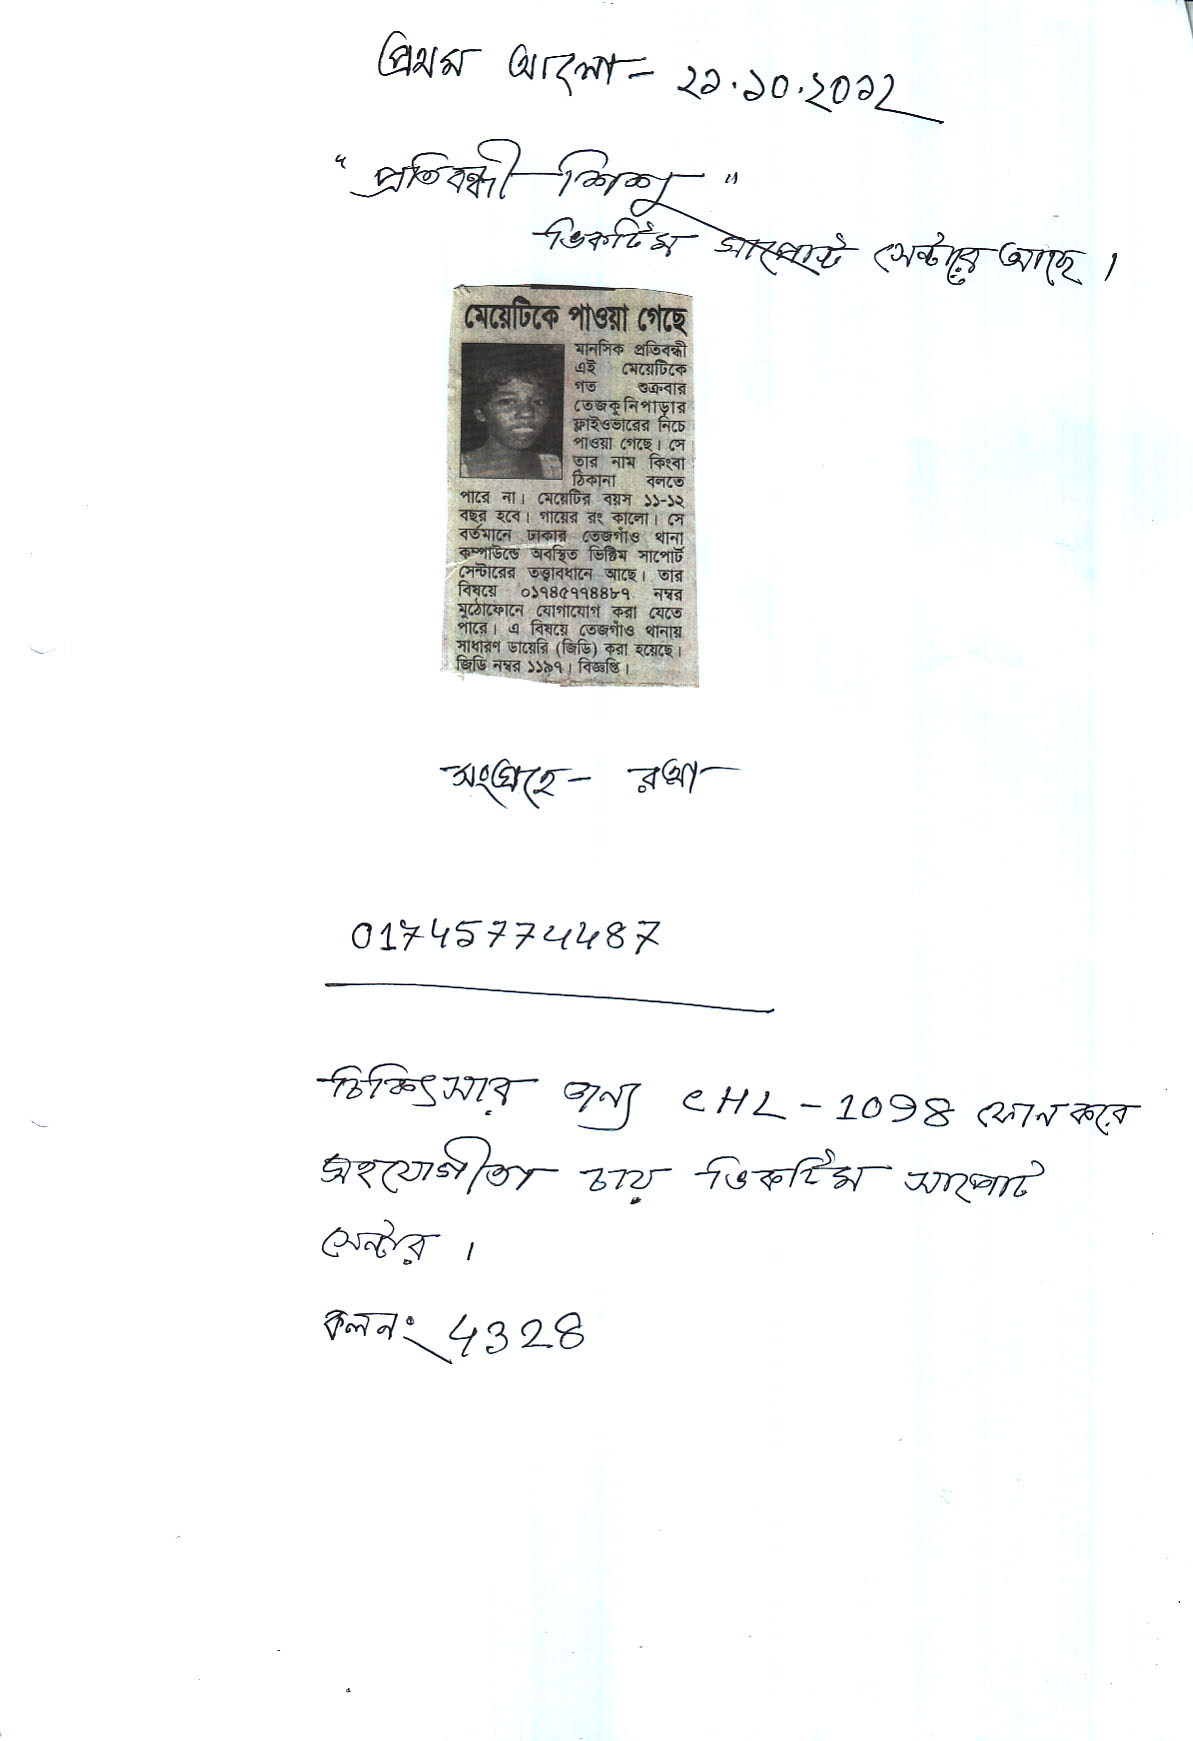 প্রথম আলো - ২১.১০.২০১২
"প্রতিবন্ধী শিশু"
ভিকটিম সাপোর্ট সেন্টারে আছে।
মেয়েটিকে পাওয়া গেছে
মানসিক প্রতিবন্ধী
এই মেয়েটিকে
গত শুক্রবার
তেজকুনিপাড়ার
ফ্লাইওভারের নিচে
পাওয়া গেছে। সে
তার নাম কিংবা
ঠিকানা বলতে
পারে না। মেয়েটির বয়স ১১-১২
বছর হবে। গায়ের রং কালো। সে
বর্তমানে ঢাকার তেজগাঁও থানা
কম্পাউন্ডে অবস্থিত ভিক্টিম সাপোর্ট
সেন্টারের তত্ত্বাবধানে আছে। তার
বিষয়ে ০১৭৪৫৭৭৪৪৮৭ নম্বর
মুঠোফোনে যোগাযোগ করা যেতে
পারে। এ বিষয়ে তেজগাঁও থানায়
সাধারণ ডায়েরি (জিডি) করা হয়েছে।
জিডি নম্বর ১১৯৭। বিজ্ঞপ্তি।
সংগ্রহে - রত্না
01745774487
চিকিৎসার জন্য CHL - 1098 ফোন করে
সহযোগীতা চায় ভিকটিম সাপোর্ট
সেন্টার।
কল নং 4328